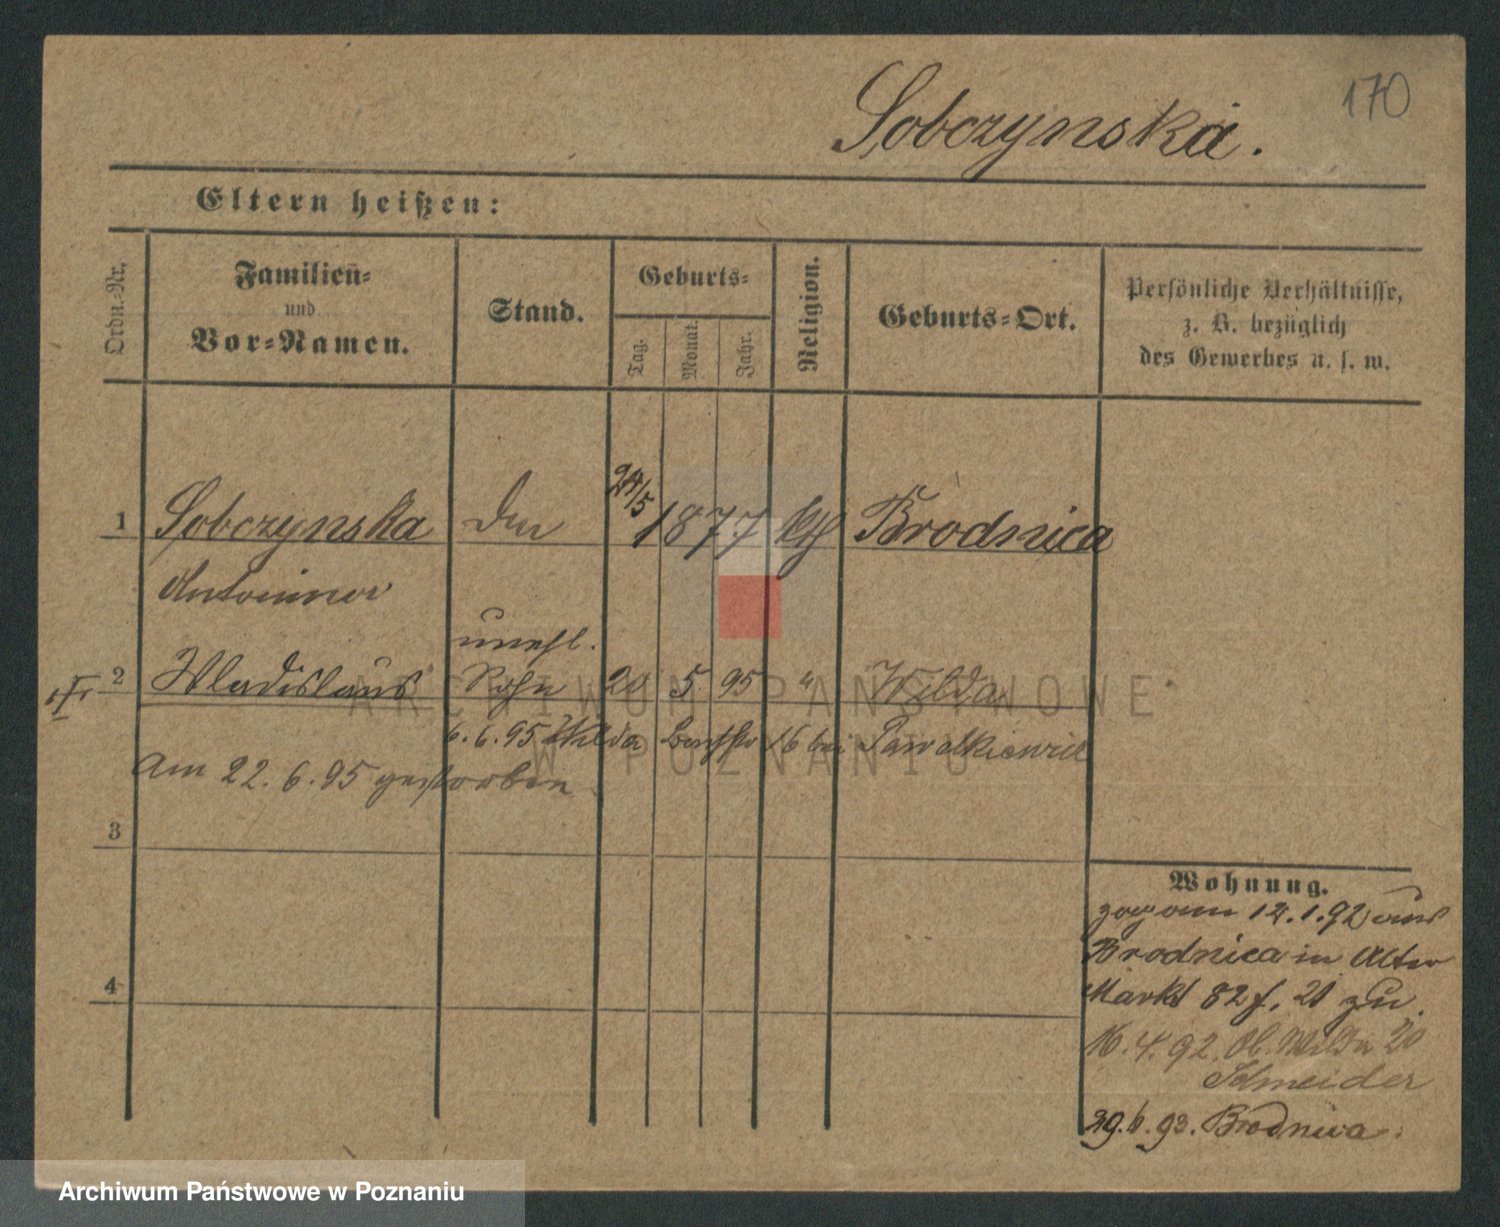 170
Sobczynska.
Eltern heißen:
Ordn.-Nr.
Familien-
und
Vor-Namen.
Stand.
Geburts-
Tag.
Monat.
Jahr.
Religion.
Geburts-Ort.
Persönliche Verhältnisse,
z. B. bezüglich
des Gewerbes u. s. w.
1 Sobczynska 24/5 1877 kth Brodnica
unehl.
2 Wladislaus Sohn 20 5 95 " Wilda
6.6.95 Wilda 16 bei
Am 22.6.95 gestorben
3
4
Wohnung.
zog am 14.1.92 aus
Brodnica in Alter
Markt 82 f. 20 zu.
16.4.92. Ob. Wilda 20
Schneider
29.6.93. Brodnica.
ARCHIWUM PAŃSTWOWE
W POZNANIU
Archiwum Państwowe w Poznaniu